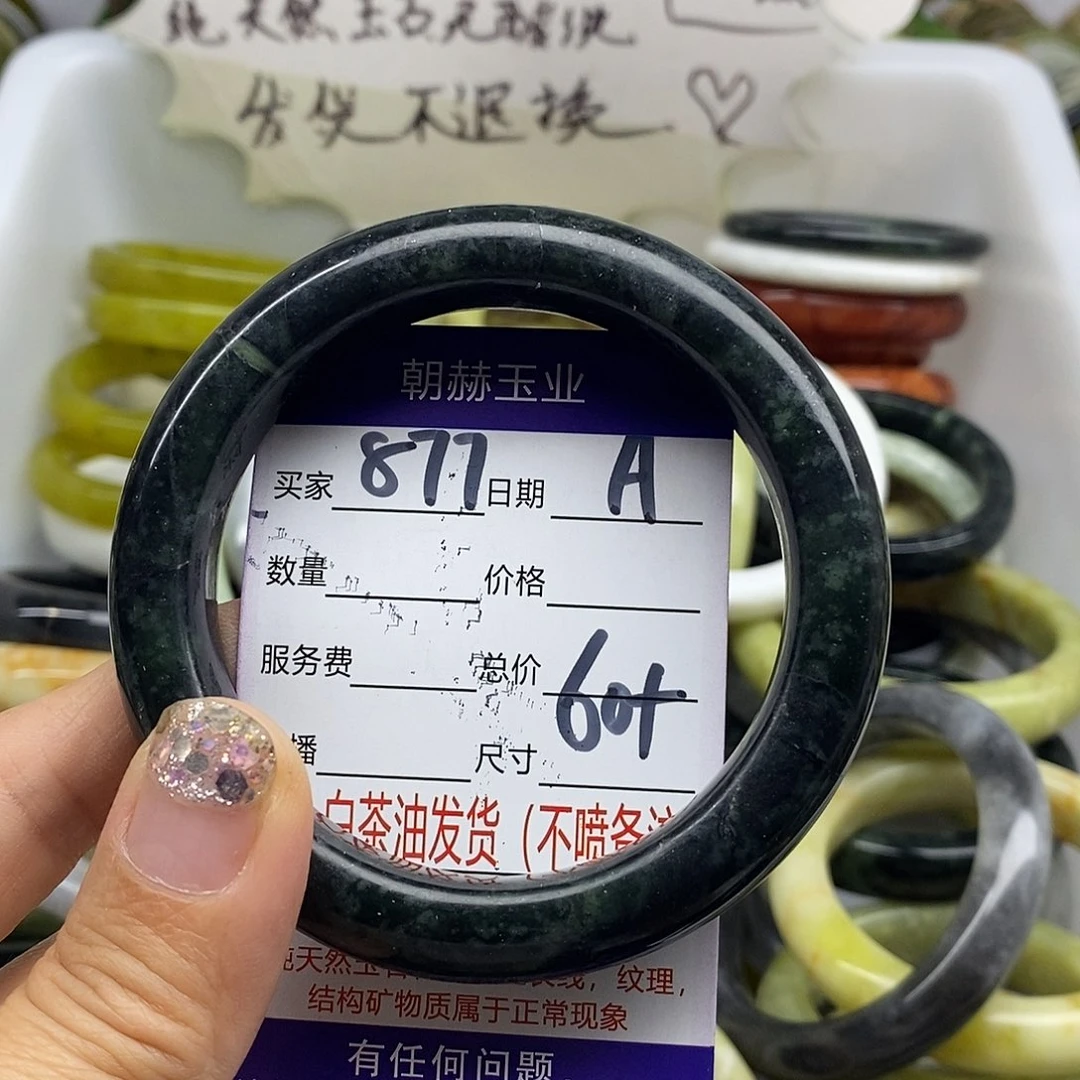 纯天然玉石无酸洗
发货不退换
朝赫玉业
买家 877 日期 A
数量 价格
服务费 总价
播 尺寸 60+
白茶油发货（不喷备注
纯天然玉石 纹理，
结构矿物质属于正常现象
有任何问题